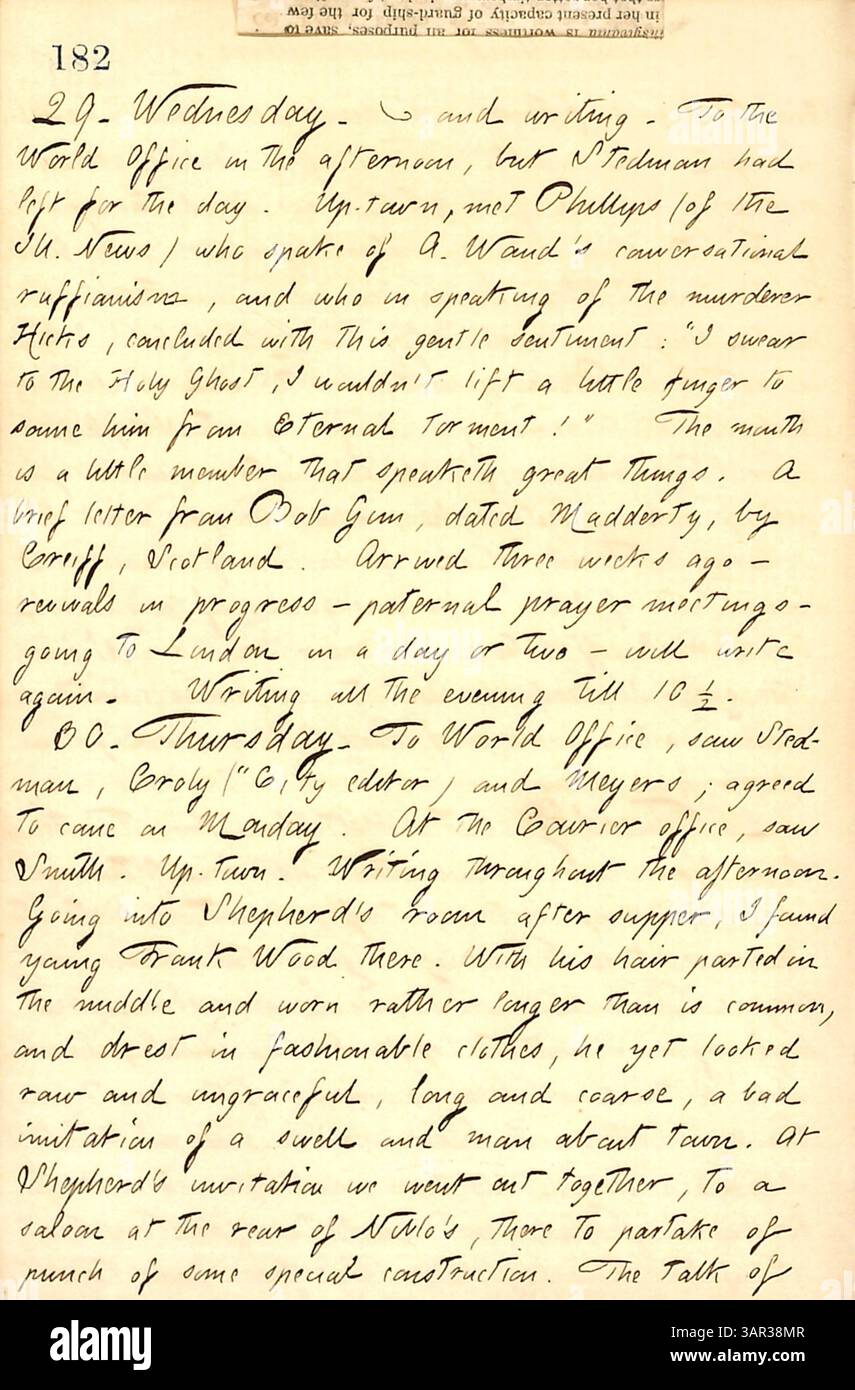 in her present capacity of guard-ship for the few
is worthless for all purposes, save to
182
29. Wednesday. and writing. To the
World Office in the afternoon, but Stedman had
left for the day. Up-town, met Phillips (of the
Ill. News) who spake of A. Waud's conversational
ruffianism, and who in speaking of the murderer
Hicks, concluded with this gentle sentiment: "I swear
to the Holy Ghost, I wouldn't lift a little finger to
same him from Eternal torment!" The mouth
is a little member that speaketh great things. A
brief letter from Bob Gun, dated Madderty, by
Creiff, Scotland. Arrived three weeks ago —
revivals in progress — paternal prayer meetings —
going to London in a day or two — will write
again. Writing all the evening till 10 ½.
30. Thursday. To World Office, saw Sted-
man, Croly ("City editor) and Meyers; agreed
to come on Monday. At the Courier office, saw
Smith. Up-town. Writing throughout the afternoon.
Going into Shepherd's room after supper, I found
young Frank Wood there. With his hair parted in
the middle and worn rather longer than is common,
and drest in fashionable clothes, he yet looked
raw and ungraceful, long and coarse, a bad
imitation of a swell and man about town. At
Shepherd's invitation we went out together, to a
saloon at the rear of Niblo's, there to partake of
punch of some special construction. The talk of
alamy
Image ID: 3AR38MR
www.alamy.com